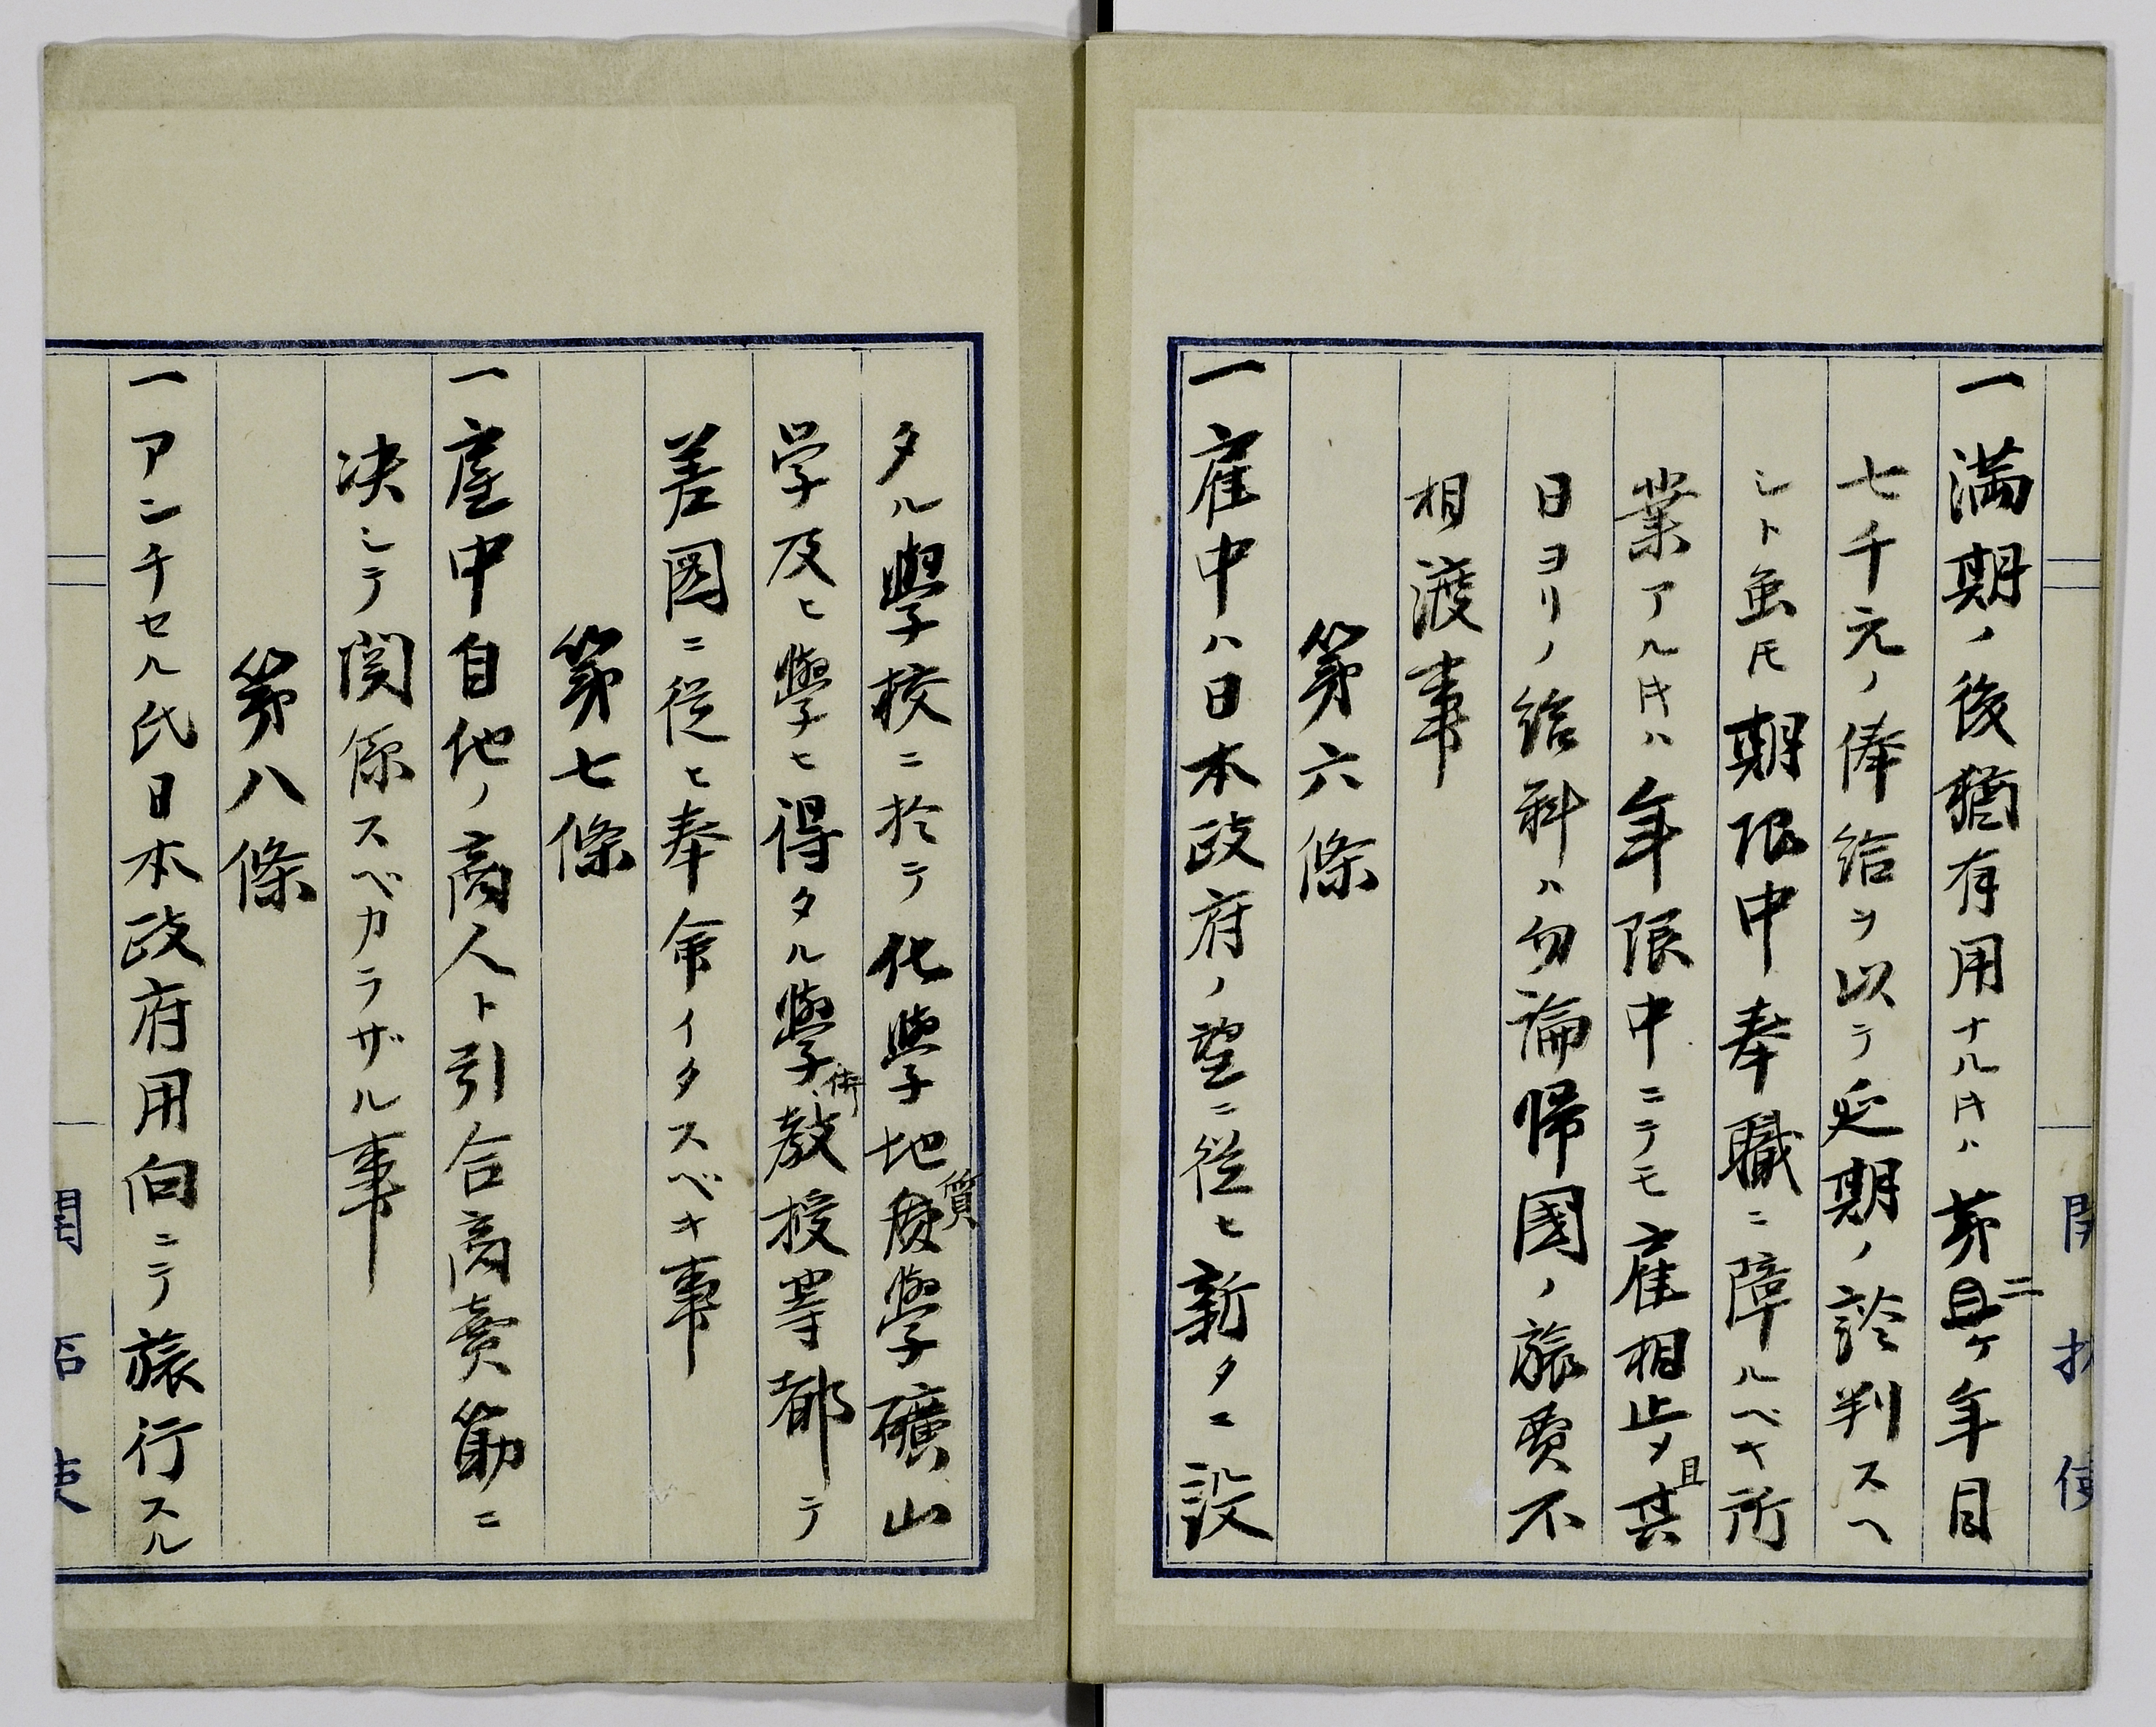 一満期ノ後猶有用ナル片ハ第二ケ年目
七千元ノ俸給ヲ以テ延期ノ談判スヘ
シト虽𪜈期限中奉職ニ障ルベキ所
業アル片ハ年限中ニテモ雇相止メ且其
日ヨリノ給料ハ勿論帰國ノ旅費不
相渡事
第六條
一雇中ハ日本政府ノ望ニ従ヒ新タニ設
タル學校ニ於テ化學地質學礦山
学及ヒ學ヒ得タル學術教授等都テ
差図ニ従ヒ奉命イタスベキ事
第七條
一雇中自他ノ商人ト引合商賣筋ニ
决シテ関係スベカラザル事
第八條
一アンチセル氏日本政府用向ニテ旅行スル
開拓使